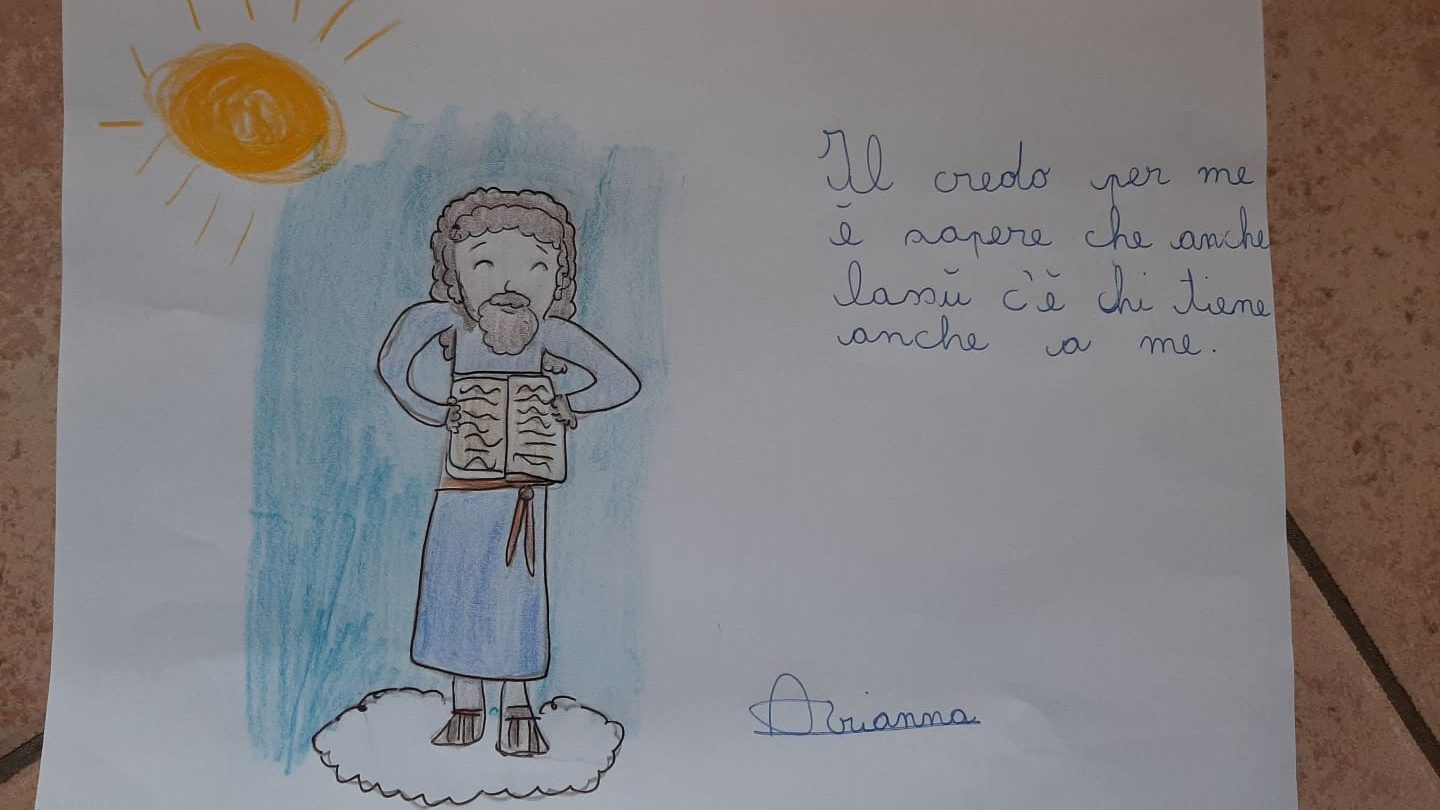 Il credo per me
è sapere che anche
lassù c'è chi tiene
anche a me.
Arianna